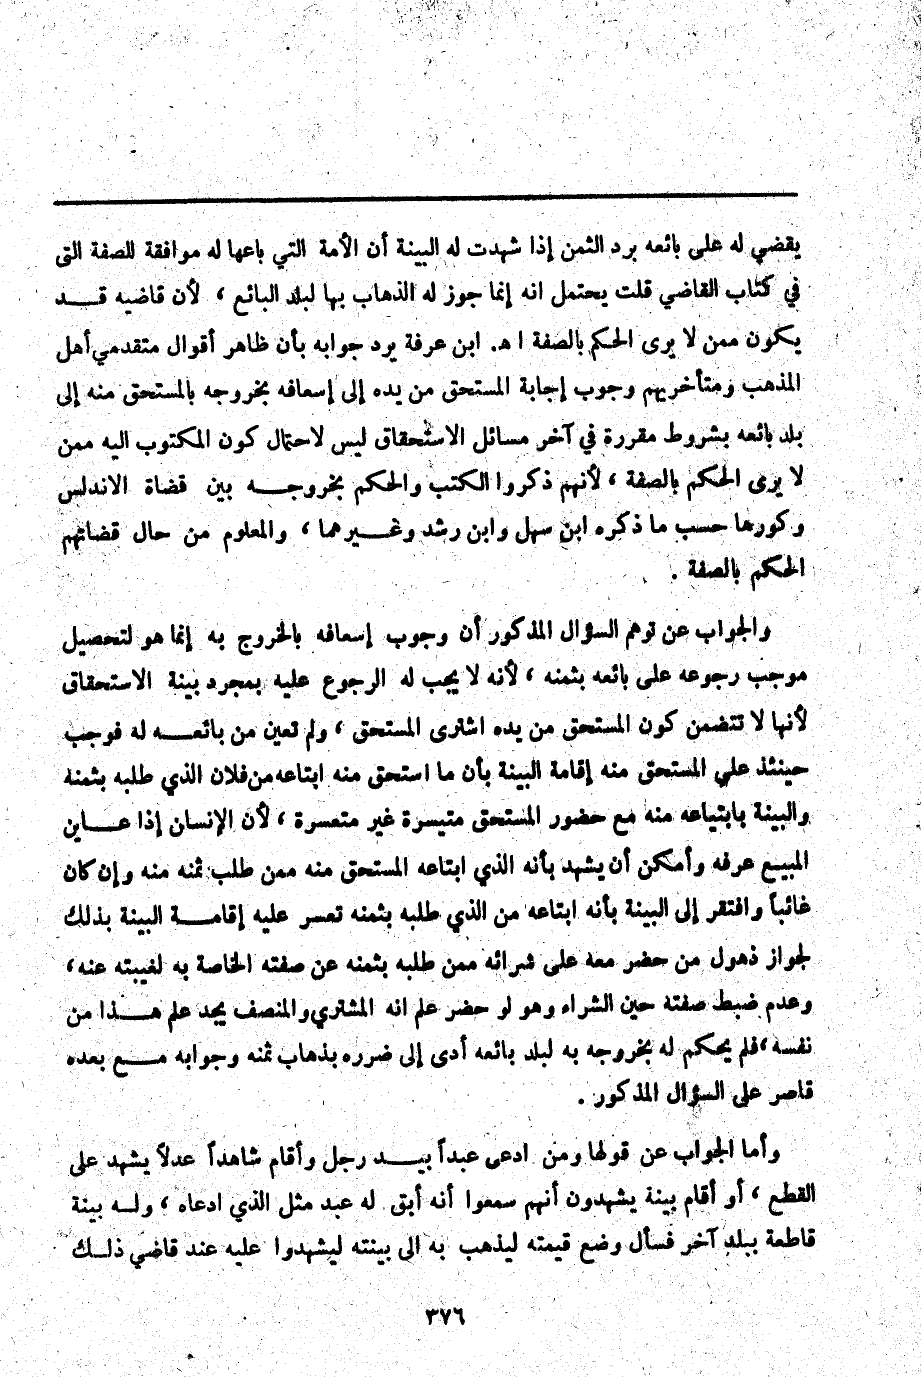 يقضي له على بائعه برد الثمن إذا شهدت له البينة أن الأمة التي باعها له موافقة للصفة التى
في كتاب القاضي قلت يحتمل انه إنما جوز له الذهاب بها لبلد البائع ، لأن قاضيه قــد
يكون ممن لا يرى الحكم بالصفة ا هـ. ابن عرفة يرد جوابه بأن ظاهر أقوال متقدمي أهل
المذهب ومتأخريهم وجوب إجابة المستحق من يده إلى إسعافه بخروجه بالمستحق منه إلى
بلد بائعه بشروط مقررة في آخر مسائل الاستحقاق ليس لاحتمال كون المكتوب اليه ممن
لا يرى الحكم بالصفة ، لأنهم ذكروا الكتب والحكم بخروجــه بين قضاة الاندلس
وكورها حسب ما ذكره ابن سهل وابن رشد وغــيرهما ، والمعلوم من حال قضاتهم
الحكم بالصفة .
والجواب عن توهم السؤال المذكور أن وجوب إسعافه بالخروج به إنما هو لتحصيل
موجب رجوعه على بائعه بثمنه ، لأنه لا يجب له الرجوع عليه بمجرد بينة الاستحقاق
لأنها لا تتضمن كون المستحق من يده اشترى المستحق ، ولم تعين من بائعــه له فوجب
حينئذ علي المستحق منه إقامة البينة بأن ما استحق منه ابتاعه من فلان الذي طلبه بثمنه
والبينة بابتياعه منه مع حضور المستحق متيسرة غير متعسرة ، لأن الإنسان إذا عــاين
المبيـع عرفه وأمكن أن يشهد بأنه الذي ابتاعه المستحق منه ممن طلب ثمنه منه وإن كان
غائباً وافتقر إلى البينة بأنه ابتاعه من الذي طلبه بثمنه تعسر عليه إقامــة البينة بذلك
لجواز ذهول من حضر معه على شرائه ممن طلبه بثمنه عن صفته الخاصة به لغيبته عنه،
وعدم ضبط صفته حين الشراء وهو لو حضر علم انه المشتري والمنصف يجد علم هــذا من
نفسه ، فلم يحكم له بخروجه به لبلد بائعه أدى إلى ضرره بذهاب ثمنه وجوابه مــع بعده
قاصر على السؤال المذكور .
وأما الجواب عن قولها ومن ادعى عبداً بيــد رجل وأقام شاهداً عدلاً يشهد على
القطع ، أو أقام بينة يشهدون أنهم سمعوا أنه أبق له عبد مثل الذي ادعاه ، ولــه بينة
قاطعة ببلد آخر فسأل وضع قيمته ليذهب به الى بينته ليشهدوا عليه عند قاضي ذلــك
٣٧٦